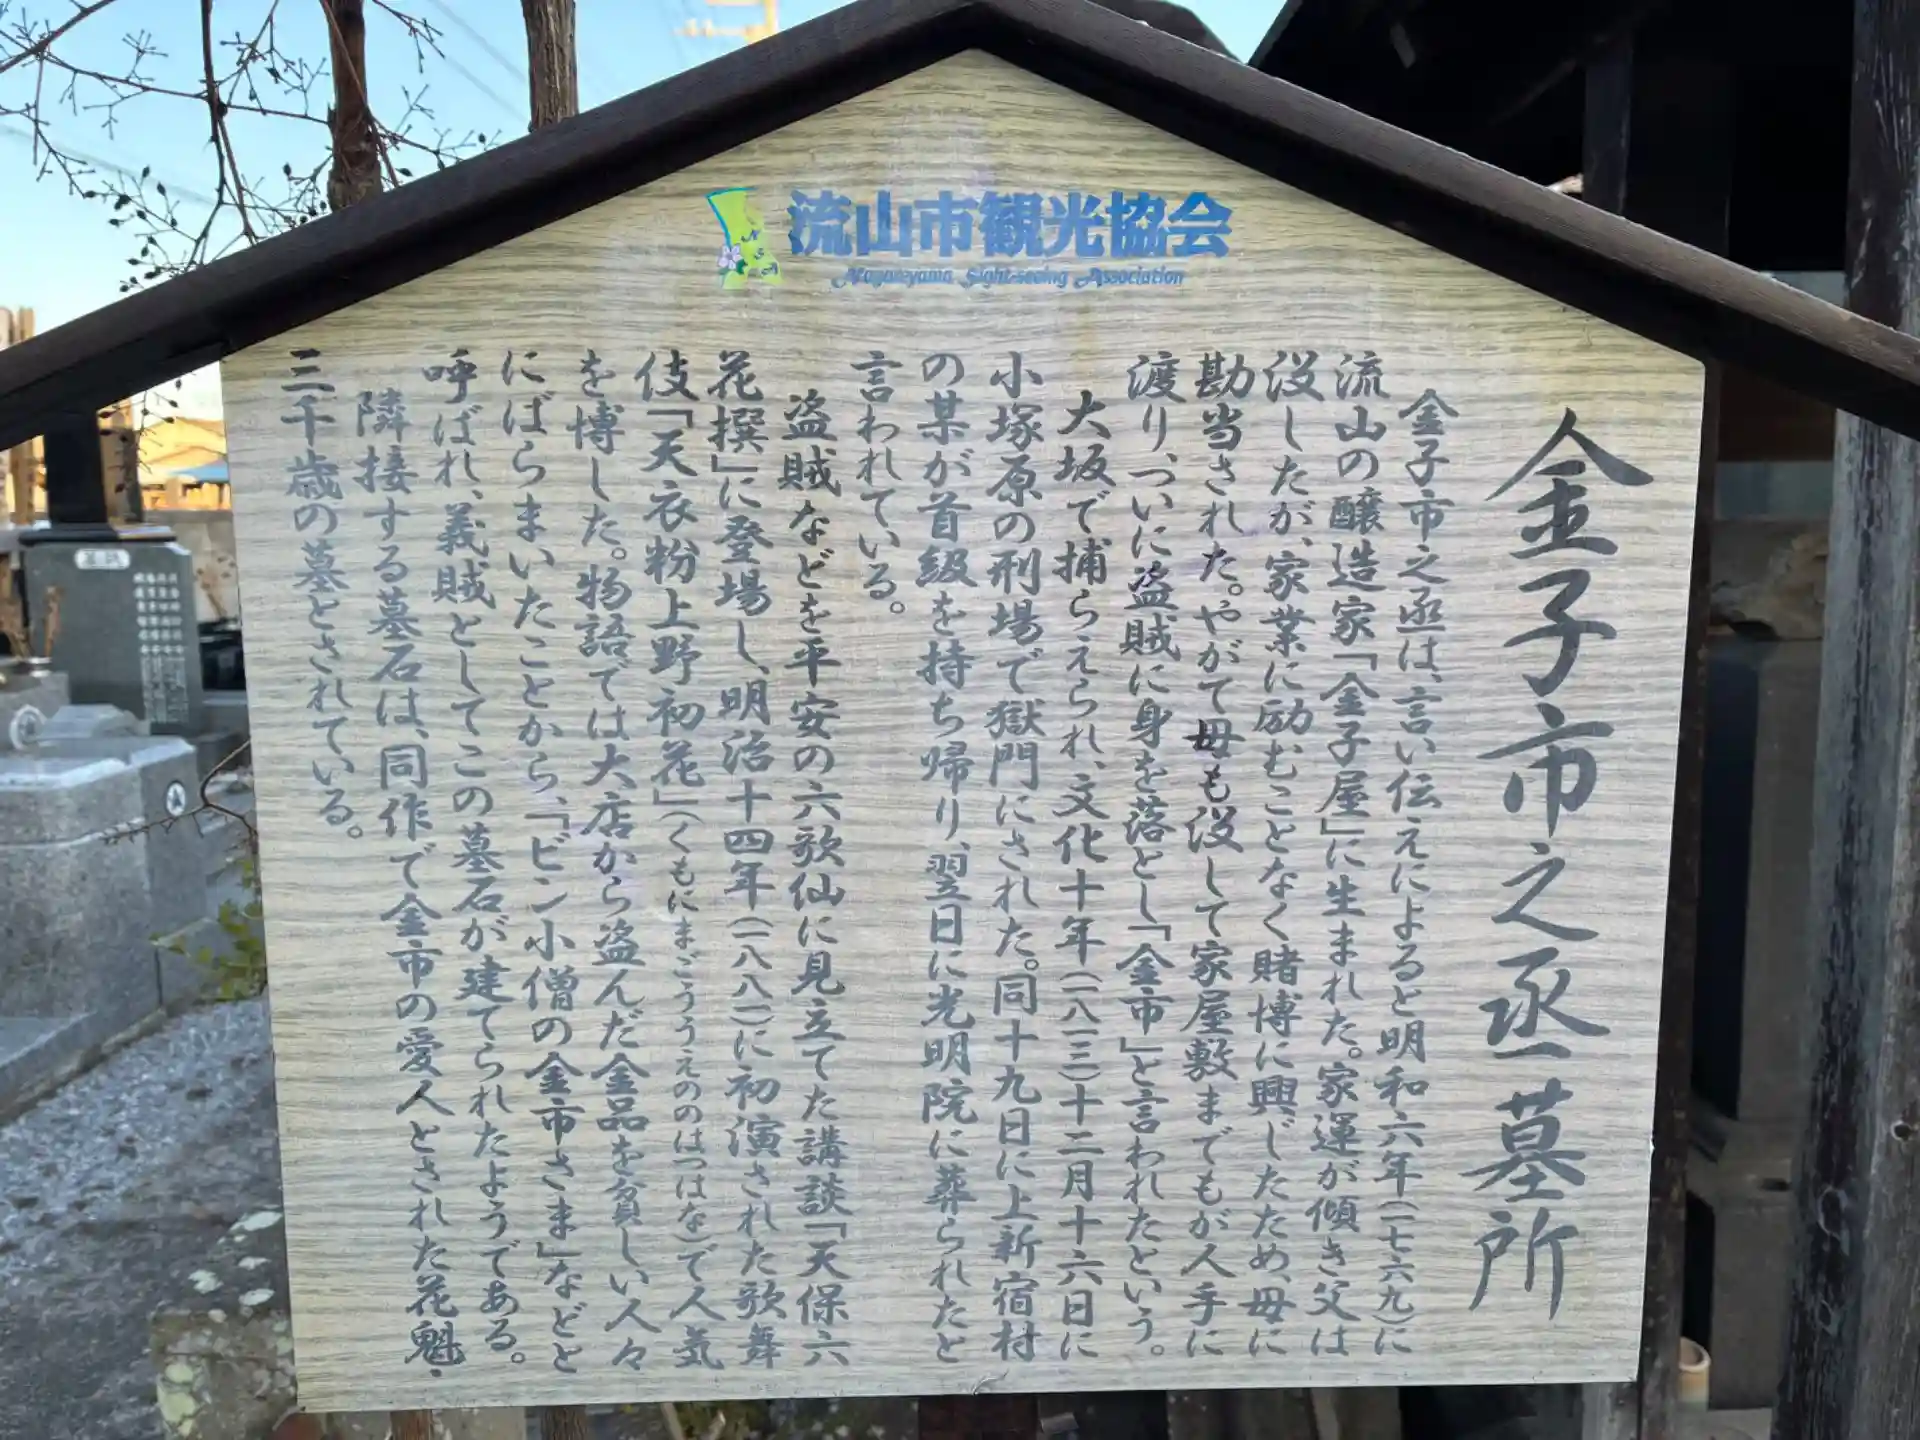 流山市観光協会
Nagareyama Sight-seeing Association
金子市之丞墓所
金子市之丞は、言い伝えによると明和六年(一七六九)に
流山の醸造家「金子屋」に生まれた。家運が傾き父は
没したが、家業に励むことなく賭博に興じたため、母に
勘当された。やがて母も没して家屋敷までもが人手に
渡り、ついに盗賊に身を落とし「金市」と言われたという。
大坂で捕らえられ、文化十年(一八一三)十二月十六日に
小塚原の刑場で獄門にされた。同十九日に上新宿村
の某が首級を持ち帰り、翌日に光明院に葬られたと
言われている。
盗賊などを平安の六歌仙に見立てた講談「天保六
花撰」に登場し、明治十四年(一八八一)に初演された歌舞
伎「天衣粉上野初花」(くもにまごううえののはつはな)で人気
を博した。物語では大店から盗んだ金品を貧しい人々
にばらまいたことから、「ビン小僧の金市さま」などと
呼ばれ、義賊としてこの墓石が建てられたようである。
隣接する墓石は、同作で金市の愛人とされた花魁・
三千歳の墓とされている。